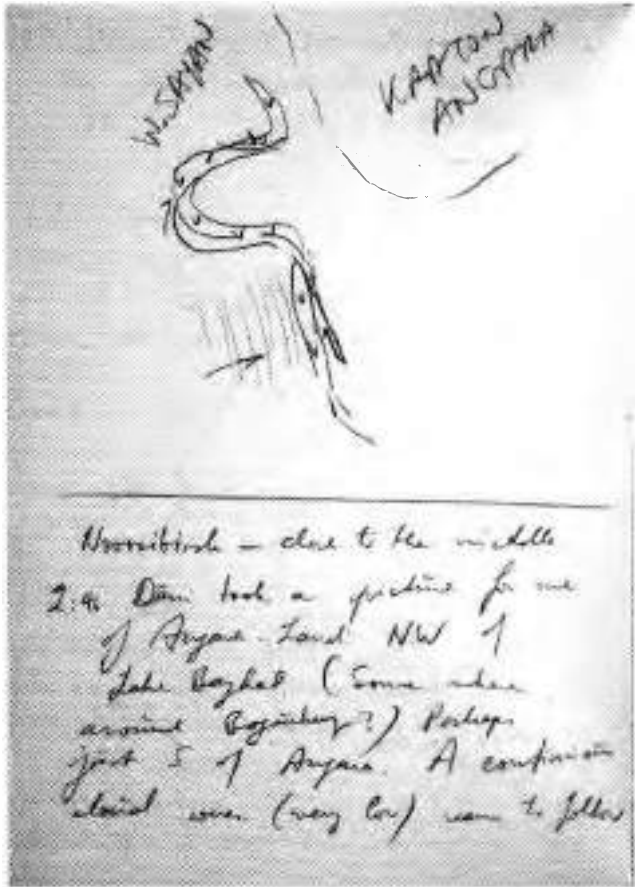 W. SAYAN
ANGARA
Novosibirsk – close to the middle
took a picture for me
of Angara-Land NW of
Lake Baykal (Some where
around ?) Perhaps
just S of Angara. A continuous
cloud cover (very low) seems to follow